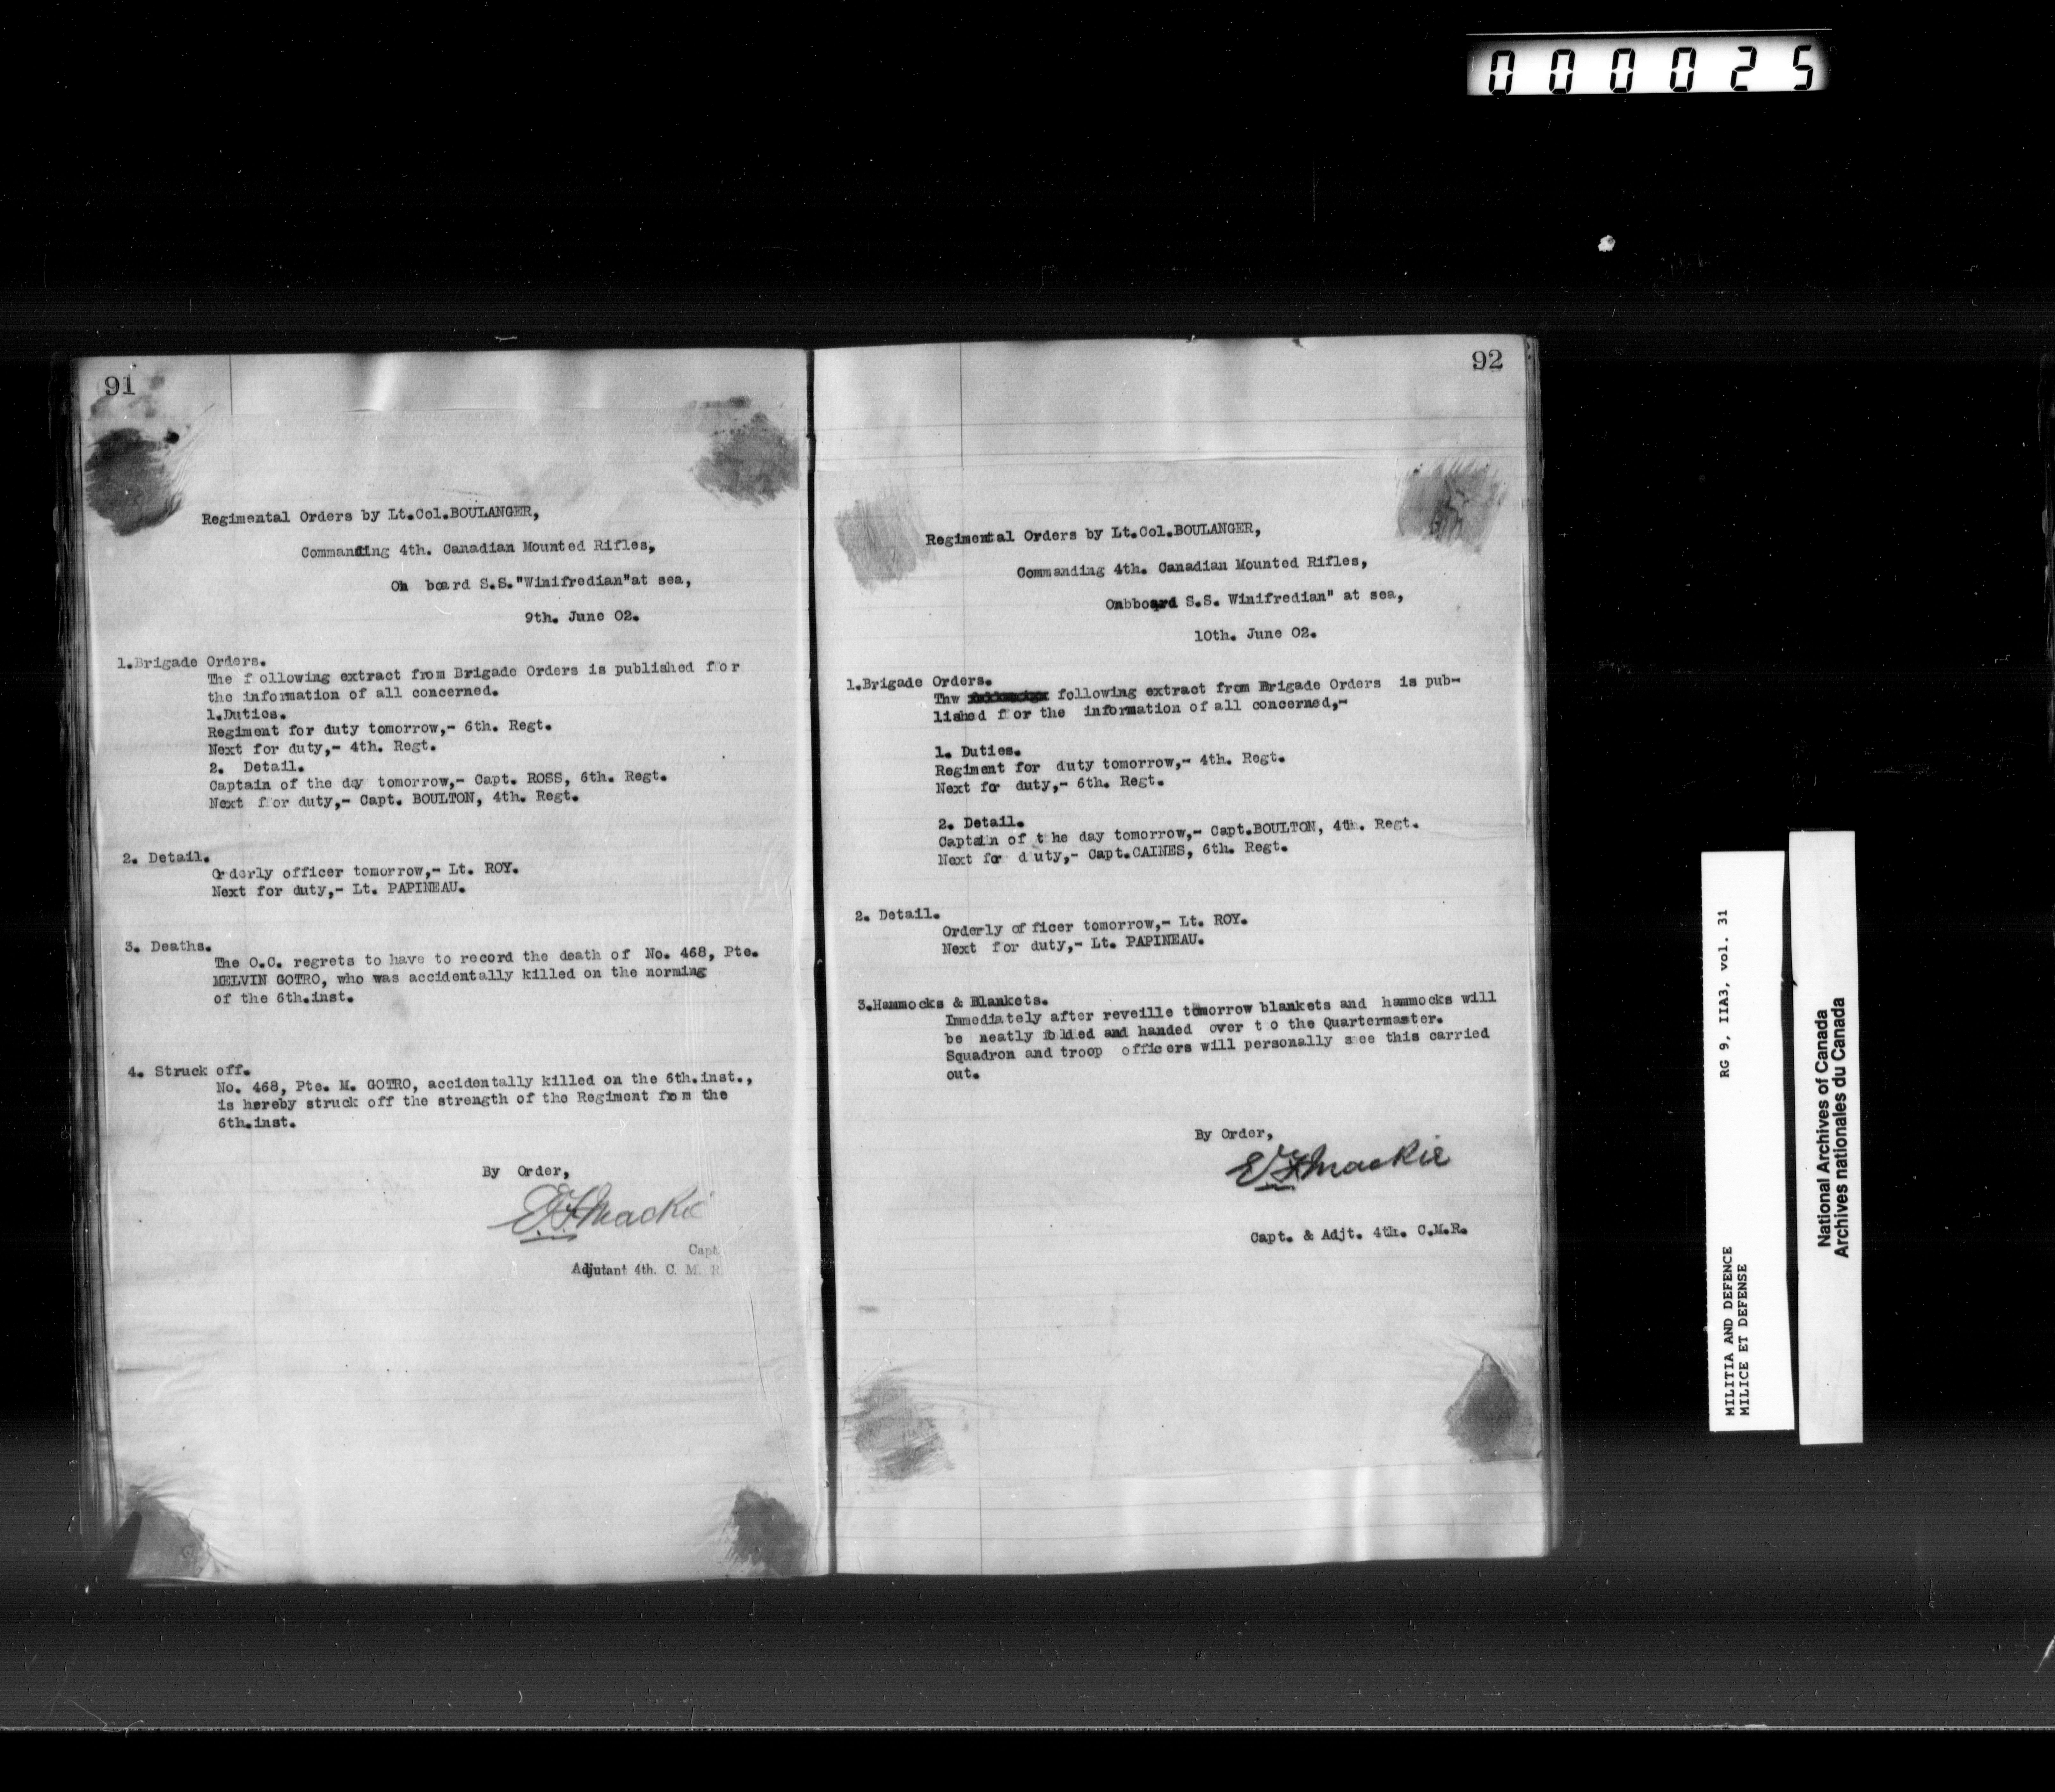 000025
91
Regimental Orders by Lt.Col.BOULANGER,
Commanding 4th. Canadian Mounted Rifles,
On board S.S."Winifredian"at sea,
9th. June 02.
1.Brigade Orders.
The following extract from Brigade Orders is published for
the information of all concerned.
1.Duties.
Regiment for duty tomorrow,- 6th. Regt.
Next for duty,- 4th. Regt.
2. Detail.
Captain of the day tomorrow,- Capt. ROSS, 6th. Regt.
Next for duty,- Capt. BOULTON, 4th. Regt.
2. Detail.
Orderly officer tomorrow,- Lt. ROY.
Next for duty,- Lt. PAPINEAU.
3. Deaths.
The O.C. regrets to have to record the death of No. 468, Pte.
MELVIN GOTRO, who was accidentally killed on the norming
of the 6th.inst.
4. Struck off.
No. 468, Pte. M. GOTRO, accidentally killed on the 6th.inst.,
is hereby struck off the strength of the Regiment from the
6th.inst.
By Order,
E.F.Mackie
Capt.
Adjutant 4th. C. M. R.
92
Regimental Orders by Lt.Col.BOULANGER,
Commanding 4th. Canadian Mounted Rifles,
Onbboard S.S. Winifredian" at sea,
10th. June 02.
1.Brigade Orders.
Thw following extract from Brigade Orders is pub-
lished for the information of all concerned,-
1. Duties.
Regiment for duty tomorrow,- 4th. Regt.
Next for duty,- 6th. Regt.
2. Detail.
Captain of the day tomorrow,- Capt.BOULTON, 4th. Regt.
Next for duty,- Capt.CAINES, 6th. Regt.
2. Detail.
Orderly officer tomorrow,- Lt. ROY.
Next for duty,- Lt. PAPINEAU.
3.Hammocks & Blankets.
Immediately after reveille tomorrow blankets and hammocks will
be neatly folded and handed over to the Quartermaster.
Squadron and troop officers will personally see this carried
out.
By Order,
E.F.Mackie
Capt. & Adjt. 4th. C.M.R.
MILITIA AND DEFENCE RG 9, IIA3, vol. 31
MILICE ET DEFENSE
National Archives of Canada
Archives nationales du Canada